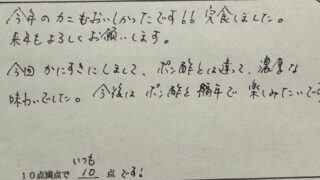 今年のカニもおいしかったです!! 完食しました。
来年もよろしくお願いします。
今回かにすきにしまして、ポン酢とは違って、濃厚な
味わいでした。今後はポン酢と隔年で楽しみたいです
いつも
10点満点で 10 点です!